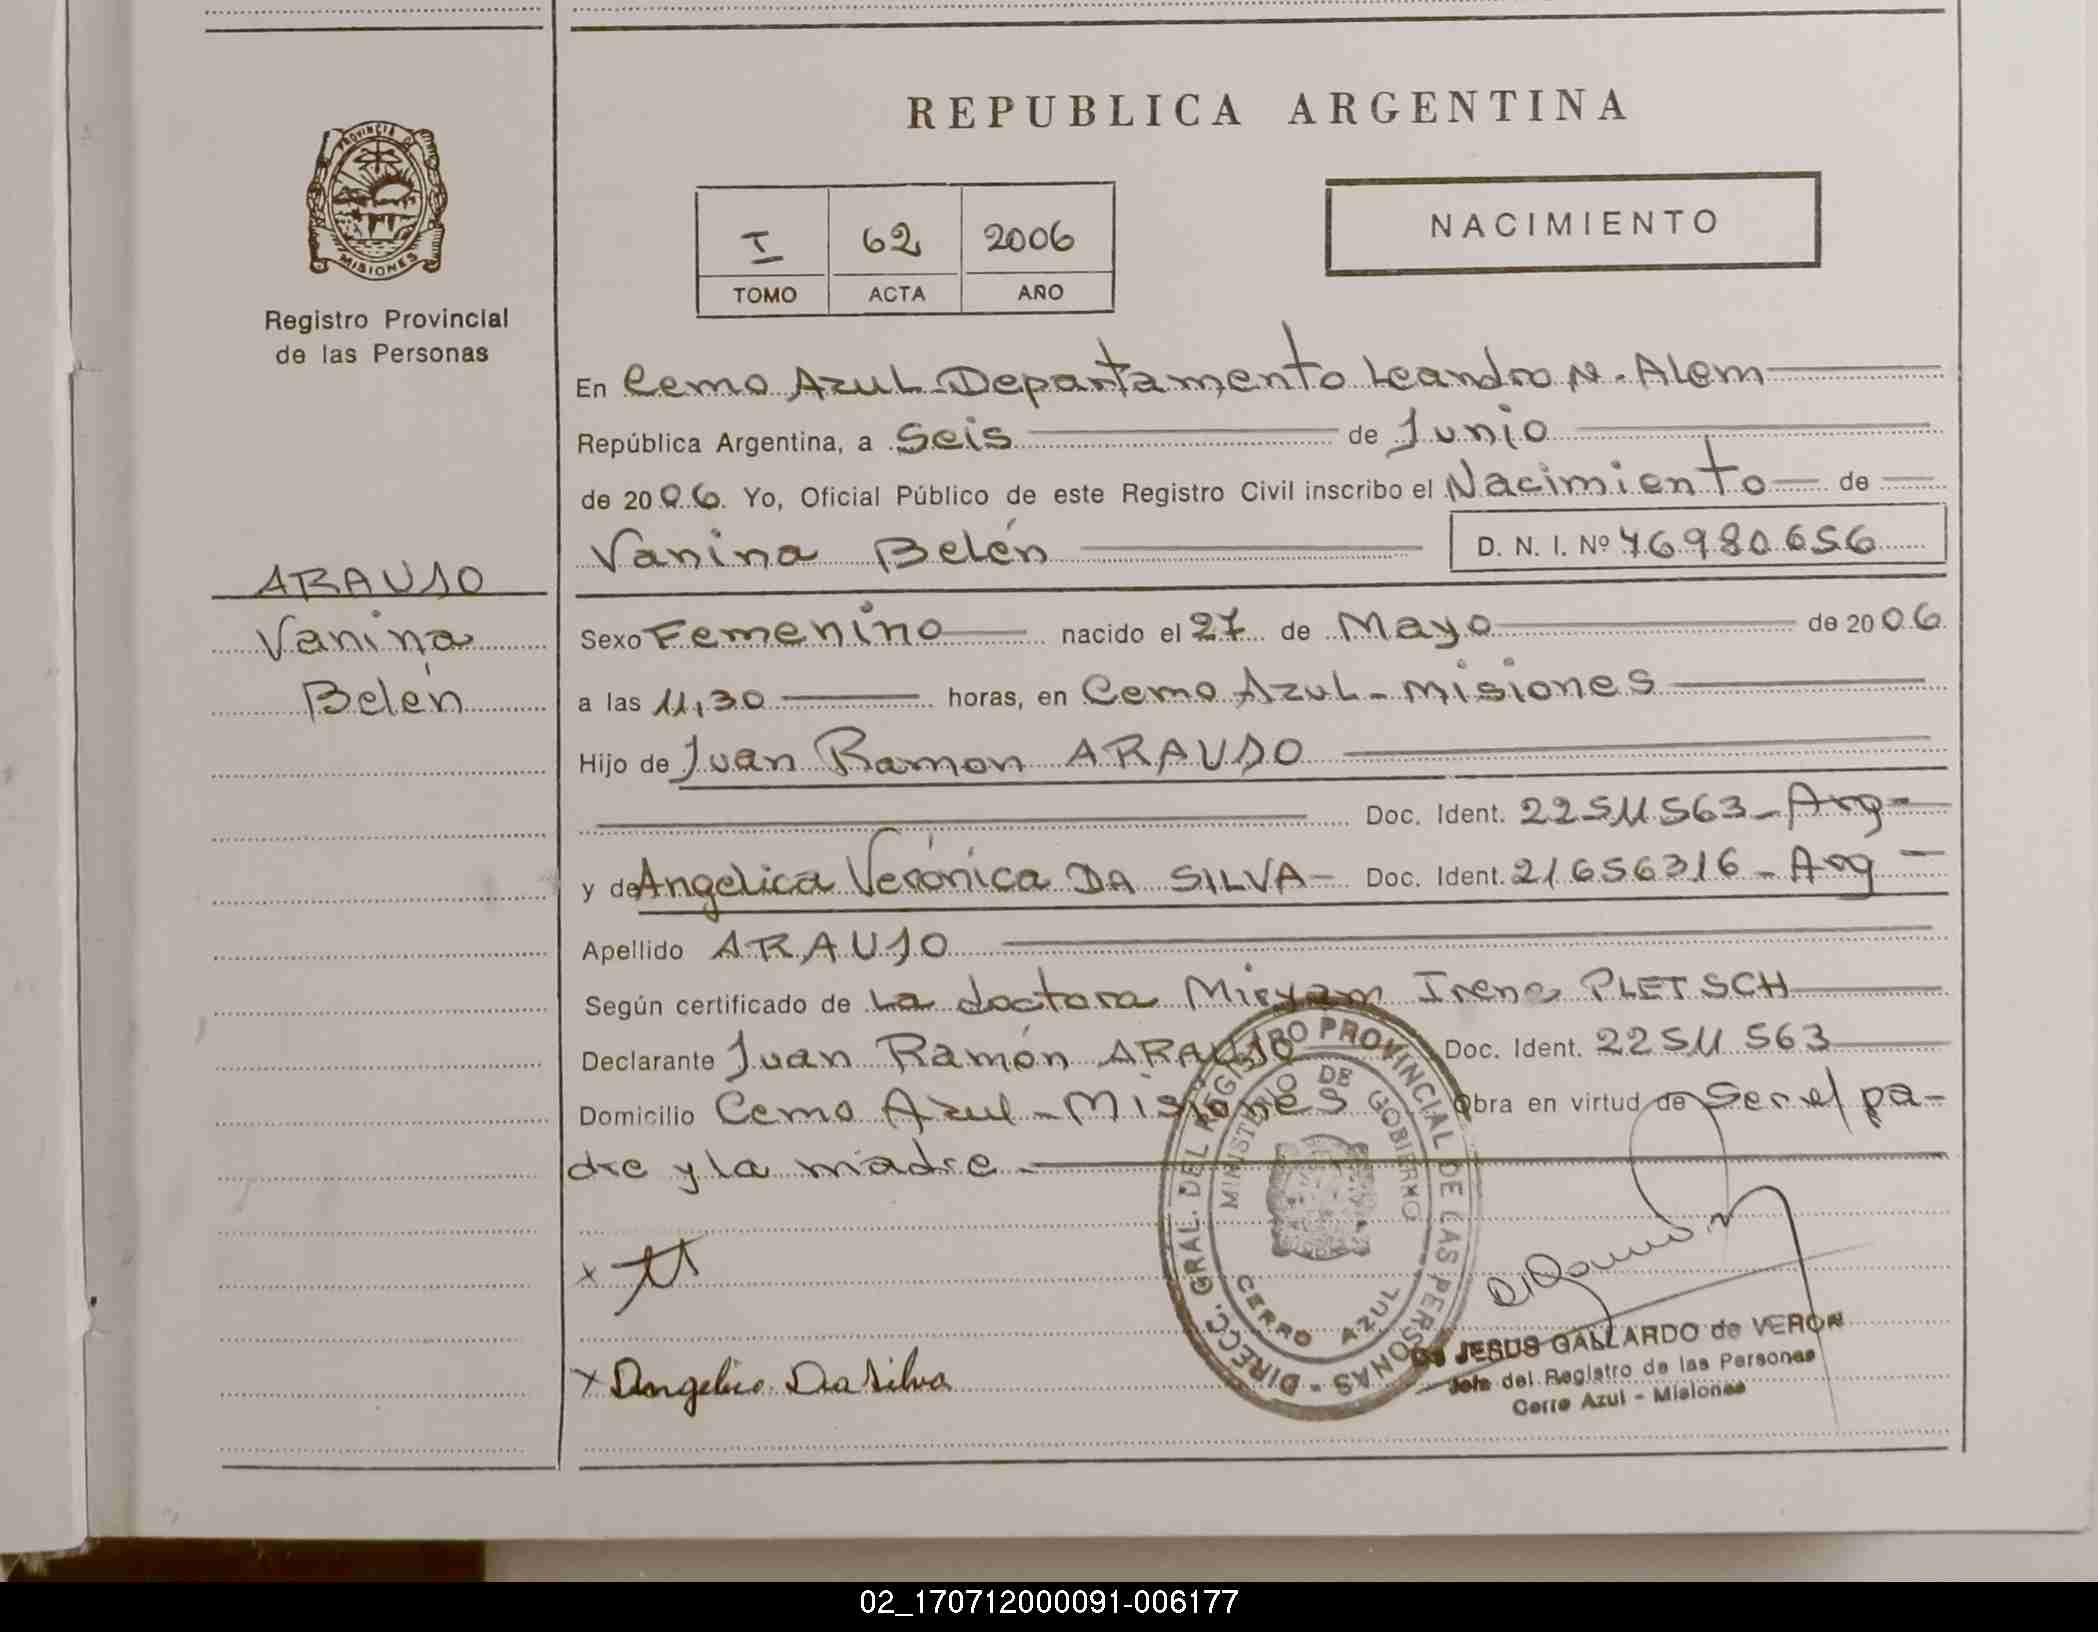 REPUBLICA ARGENTINA
PROVINCIA DE
MISIONES
Registro Provincial
de las Personas
I 62 2006
TOMO ACTA AÑO
NACIMIENTO
En Cerro Azul Departamento Leandro N. Alem
República Argentina, a Seis de Junio
de 2006. Yo, Oficial Público de este Registro Civil inscribo el Nacimiento de
Vanina Belén D. N. I. Nº 46980656
ARAUJO
Vanina
Belén
Sexo Femenino nacido el 27 de Mayo de 2006
a las 11,30 horas, en Cerro Azul - Misiones
Hijo de Juan Ramon ARAUJO
Doc. Ident. 22511563 - Arg -
y de Angelica Verónica DA SILVA - Doc. Ident. 21656316 - Arg -
Apellido ARAUJO
Según certificado de La doctora Miryam Irene PLETSCH
Declarante Juan Ramón ARAUJO Doc. Ident. 22511563
Domicilio Cerro Azul - Misiones Obra en virtud de Ser el pa-
dre y la madre -
DIRECC. GRAL. DEL REGISTRO PROVINCIAL DE LAS PERSONAS -
MINISTERIO DE GOBIERNO
CERRO AZUL
x
x Angelica Da Silva
JESUS GALLARDO de VERON
Jefe del Registro de las Personas
Cerro Azul - Misiones
02_170712000091-006177